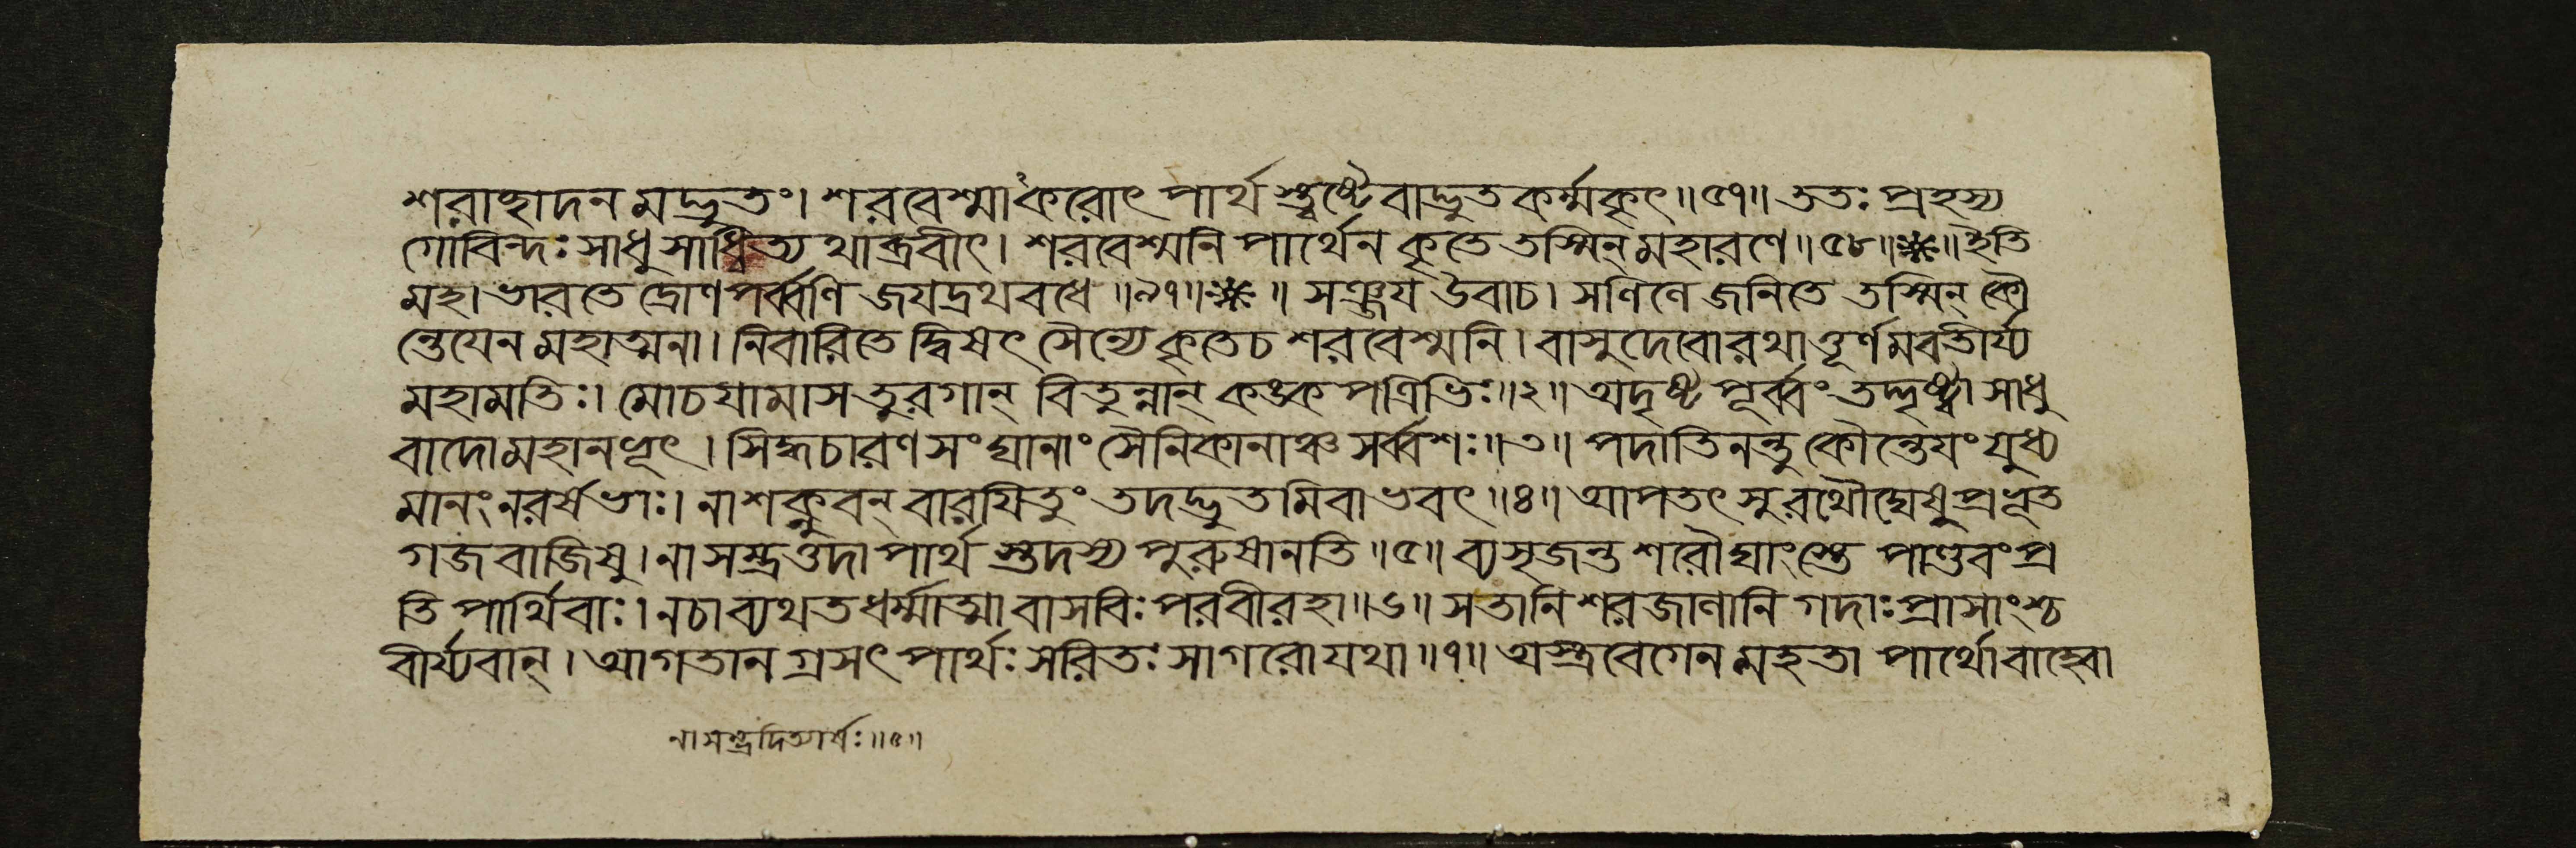 শরাচ্ছাদনমদ্ভুতং। শরবেশ্মাকরোৎ পার্থস্ত্বষ্টেবাদ্ভুতকর্ম্মকৃৎ॥৫৭॥ ততঃ প্রহস্য
গোবিন্দঃ সাধু সাধ্বিত্যথাব্রবীৎ। শরবেশ্মনি পার্থেন কৃতে তস্মিন্ মহারণে॥৫৮॥ ইতি
মহাভারতে দ্রোণপর্ব্বণি জয়দ্রথবধে॥৯৭॥ সঞ্জয় উবাচ। সলিলে জনিতে তস্মিন্ কৌ
ন্তেয়েন মহাত্মনা। নিবারিতে দ্বিষৎসৈন্যে কৃতে চ শরবেশ্মনি। বাসুদেবো রথাত্তূর্ণমবতীর্য্য
মহামতিঃ। মোচয়ামাস তুরগান্ বিতুন্নান্ কঙ্কপত্রিভিঃ॥২॥ অদৃষ্টপূর্ব্বং তদ্দৃষ্ট্বা সাধু
বাদো মহানভূৎ। সিদ্ধচারণসংঘানাং সৈনিকানাঞ্চ সর্ব্বশঃ॥৩॥ পদাতিনন্তু কৌন্তেয়ং যুধ্য
মানং নরর্ষভাঃ। নাশক্নুবন্ বারয়িতুং তদদ্ভুতমিবাভবৎ॥৪॥ আপতৎসু রথৌঘেষু প্রভূত
গজবাজিষু। নাসম্ভ্রমত্তদা পার্থস্তদস্য পুরুষানতি॥৫॥ ব্যসৃজন্ত শরৌঘাংস্তে পাণ্ডবং প্র
তি পার্থিবাঃ। ন চাব্যথত ধর্ম্মাত্মা বাসবিঃ পরবীরহা॥৬॥ স তানি শরজালানি গদাঃ প্রাসাংশ্চ
বীর্য্যবান্। আগতানগ্রসৎ পার্থঃ সরিতঃ সাগরো যথা॥৭॥ অস্ত্রবেগেন মহতা পার্থো বাহ্বো